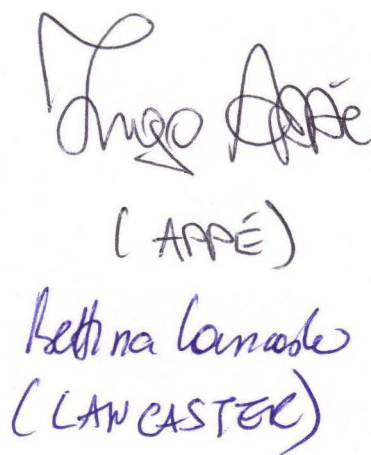 Ingo Appé
(APPÉ)
Bettina Lancaster
(LANCASTER)